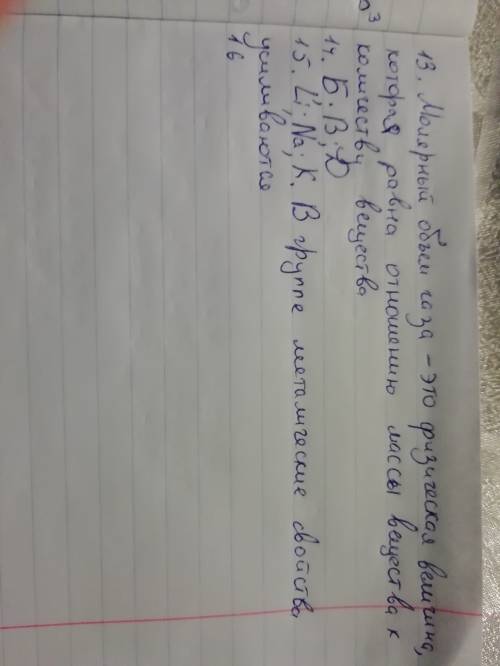 13. Молярный объем газа – это физическая величина,
которая равна отношению массы вещества к
количеству вещества
14. Б; В; Д
15. Li; Na; K. В группе металические свойства
усиливаются
16